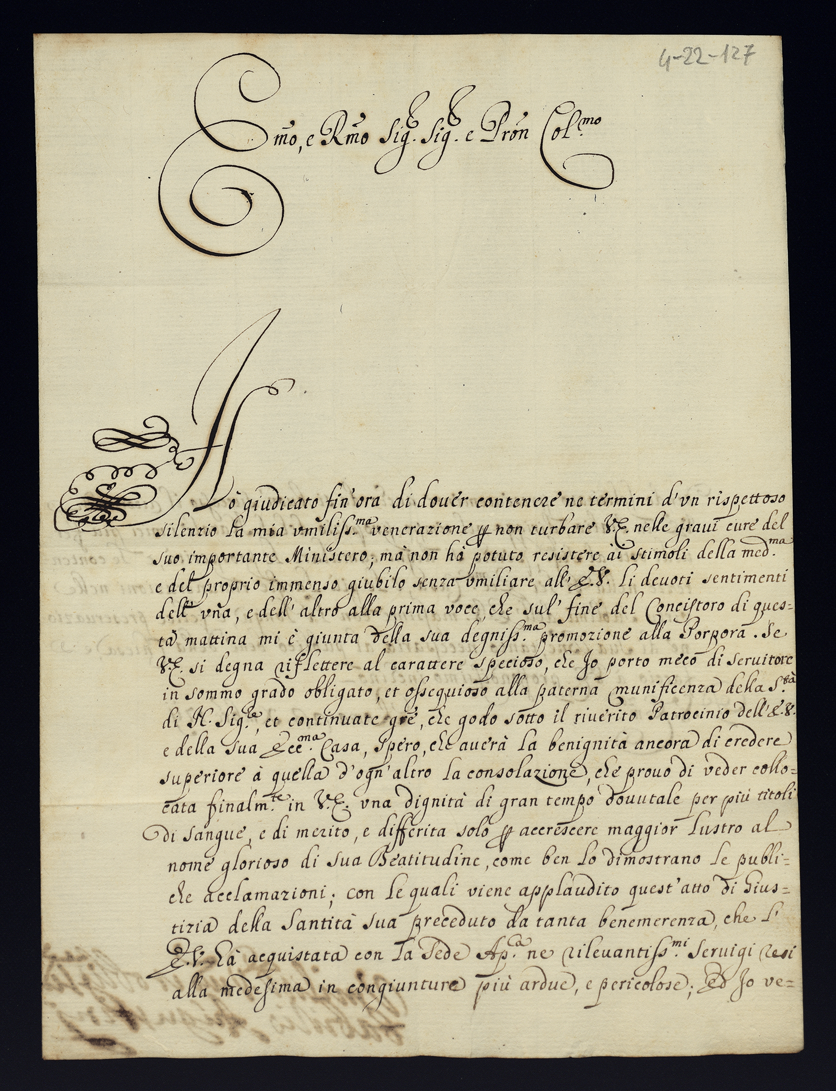 4-22-127
Emo, e Rmo Sig.r Sig.r e Pron Col.mo
Hò giudicato fin'ora di douer contenere ne termini d'vn rispettoso
silenzio la mia vmiliss.ma venerazione p non turbare V.E. nelle graui cure del
suo importante Ministero; mà non hà potuto resistere ai stimoli della med.ma
e del proprio immenso giubilo senza vmiliare all'E.V. li deuoti sentimenti
dell'vña, e dell'altro alla prima voce, che sul' fine del Concistoro di ques=
tà mattina mi è giunta della sua degniss.ma promozione alla Porpora. Se
V.E. si degna riflettere al carattere specioso, che Jo porto meco di seruitore
in sommo grado obligato, et ossequioso alla paterna munificenza della S.tà
di N. Sig.re, et continuate grē, che godo sotto il riuerito Patrocinio dell'E.V.
e della sua Ecc.ma Casa, spero, che auerà la benignità ancora di credere
superiore à quella d'ogn'altro la consolazione, che prouo di veder collo=
cata finalm.te in V.E. vna dignità di gran tempo douutale per più titoli
di sangue, e di merito, e differita solo p accrescere maggior lustro al
nome glorioso di sua Beatitudine, come ben lo dimostrano le publi=
che acclamazioni; con le quali viene applaudito quest'atto di Gius=
tizia della Santità sua preceduto da tanta benemerenza, che l'
E.V. hà acquistata con la Sede Ap.ca ne rileuantiss.mi seruigi resi
alla medesima in congiunture più ardue, e pericolose; Ed Jo ve=